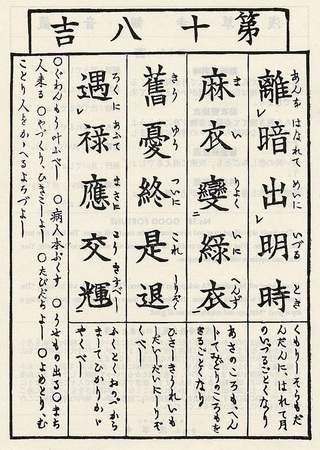 第十八吉
離暗出明時
あんを はなれて めいに いづる とき
くもりしそらもだ
んだんに、はれて月
のいづるごとくなり
麻衣變綠衣
ま い りよく いに へんず
あさのころも、へん
じてみどりのころもを
きるごとくなり
舊憂終是退
きう ゆう ついに これ しりぞく
ひさしきうれいも
しだいしだいにしりぞ
くべし
遇禄應交輝
ろくに あふて まさに こう きすべし
ふくとくおのづから
ましてひかりかゞ
やくべし
○ぐわんもう叶ふべし ○病人本ぷくす ○うせもの出る ○まち
人来る ○やづくり、ひきこしよし ○たびだちよし ○よめとり、む
ことり人をかゝへるよろづよし